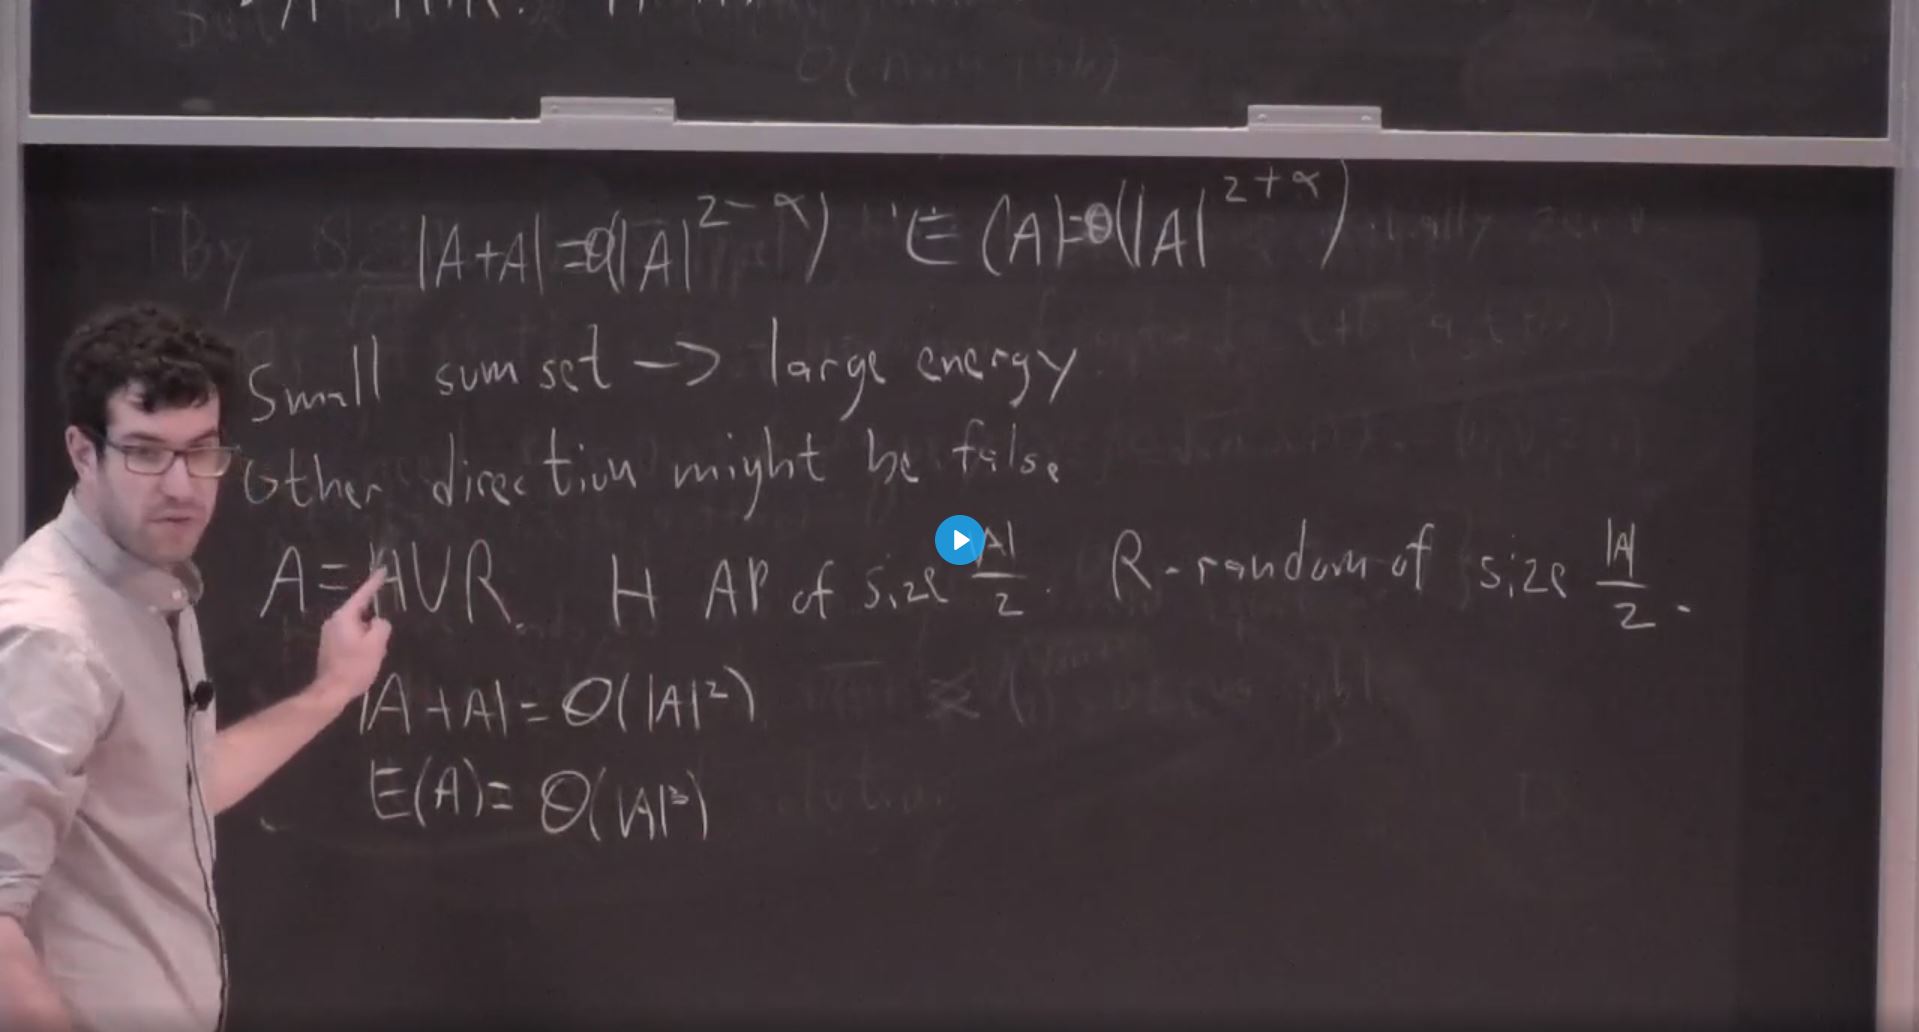 |A+A| = Θ(|A|^{2-α}) E(A) = Θ(|A|^{2+α})
Small sumset → large energy
Other direction might be false
A = H∪R. H AP of size |A|/2. R-random of size |A|/2.
|A+A| = Θ(|A|²)
E(A) = Θ(|A|³)